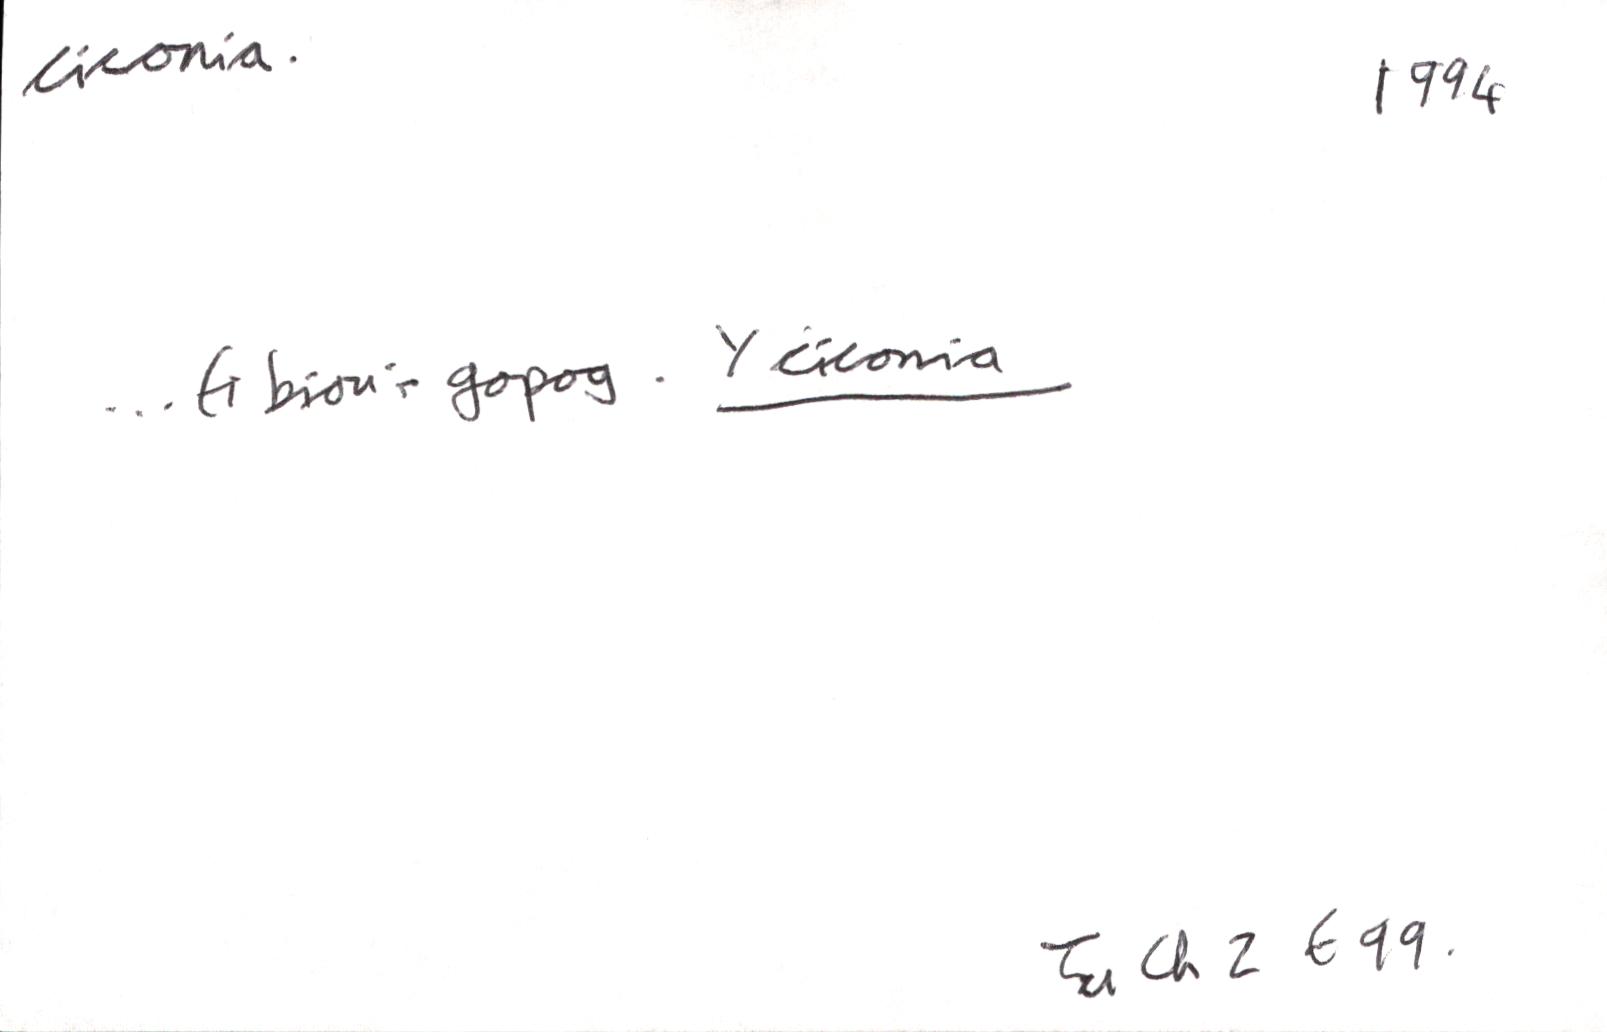 ciconia.
1994
... Ei biau'r gopog. Y ciconia
Ch 2 E 99.